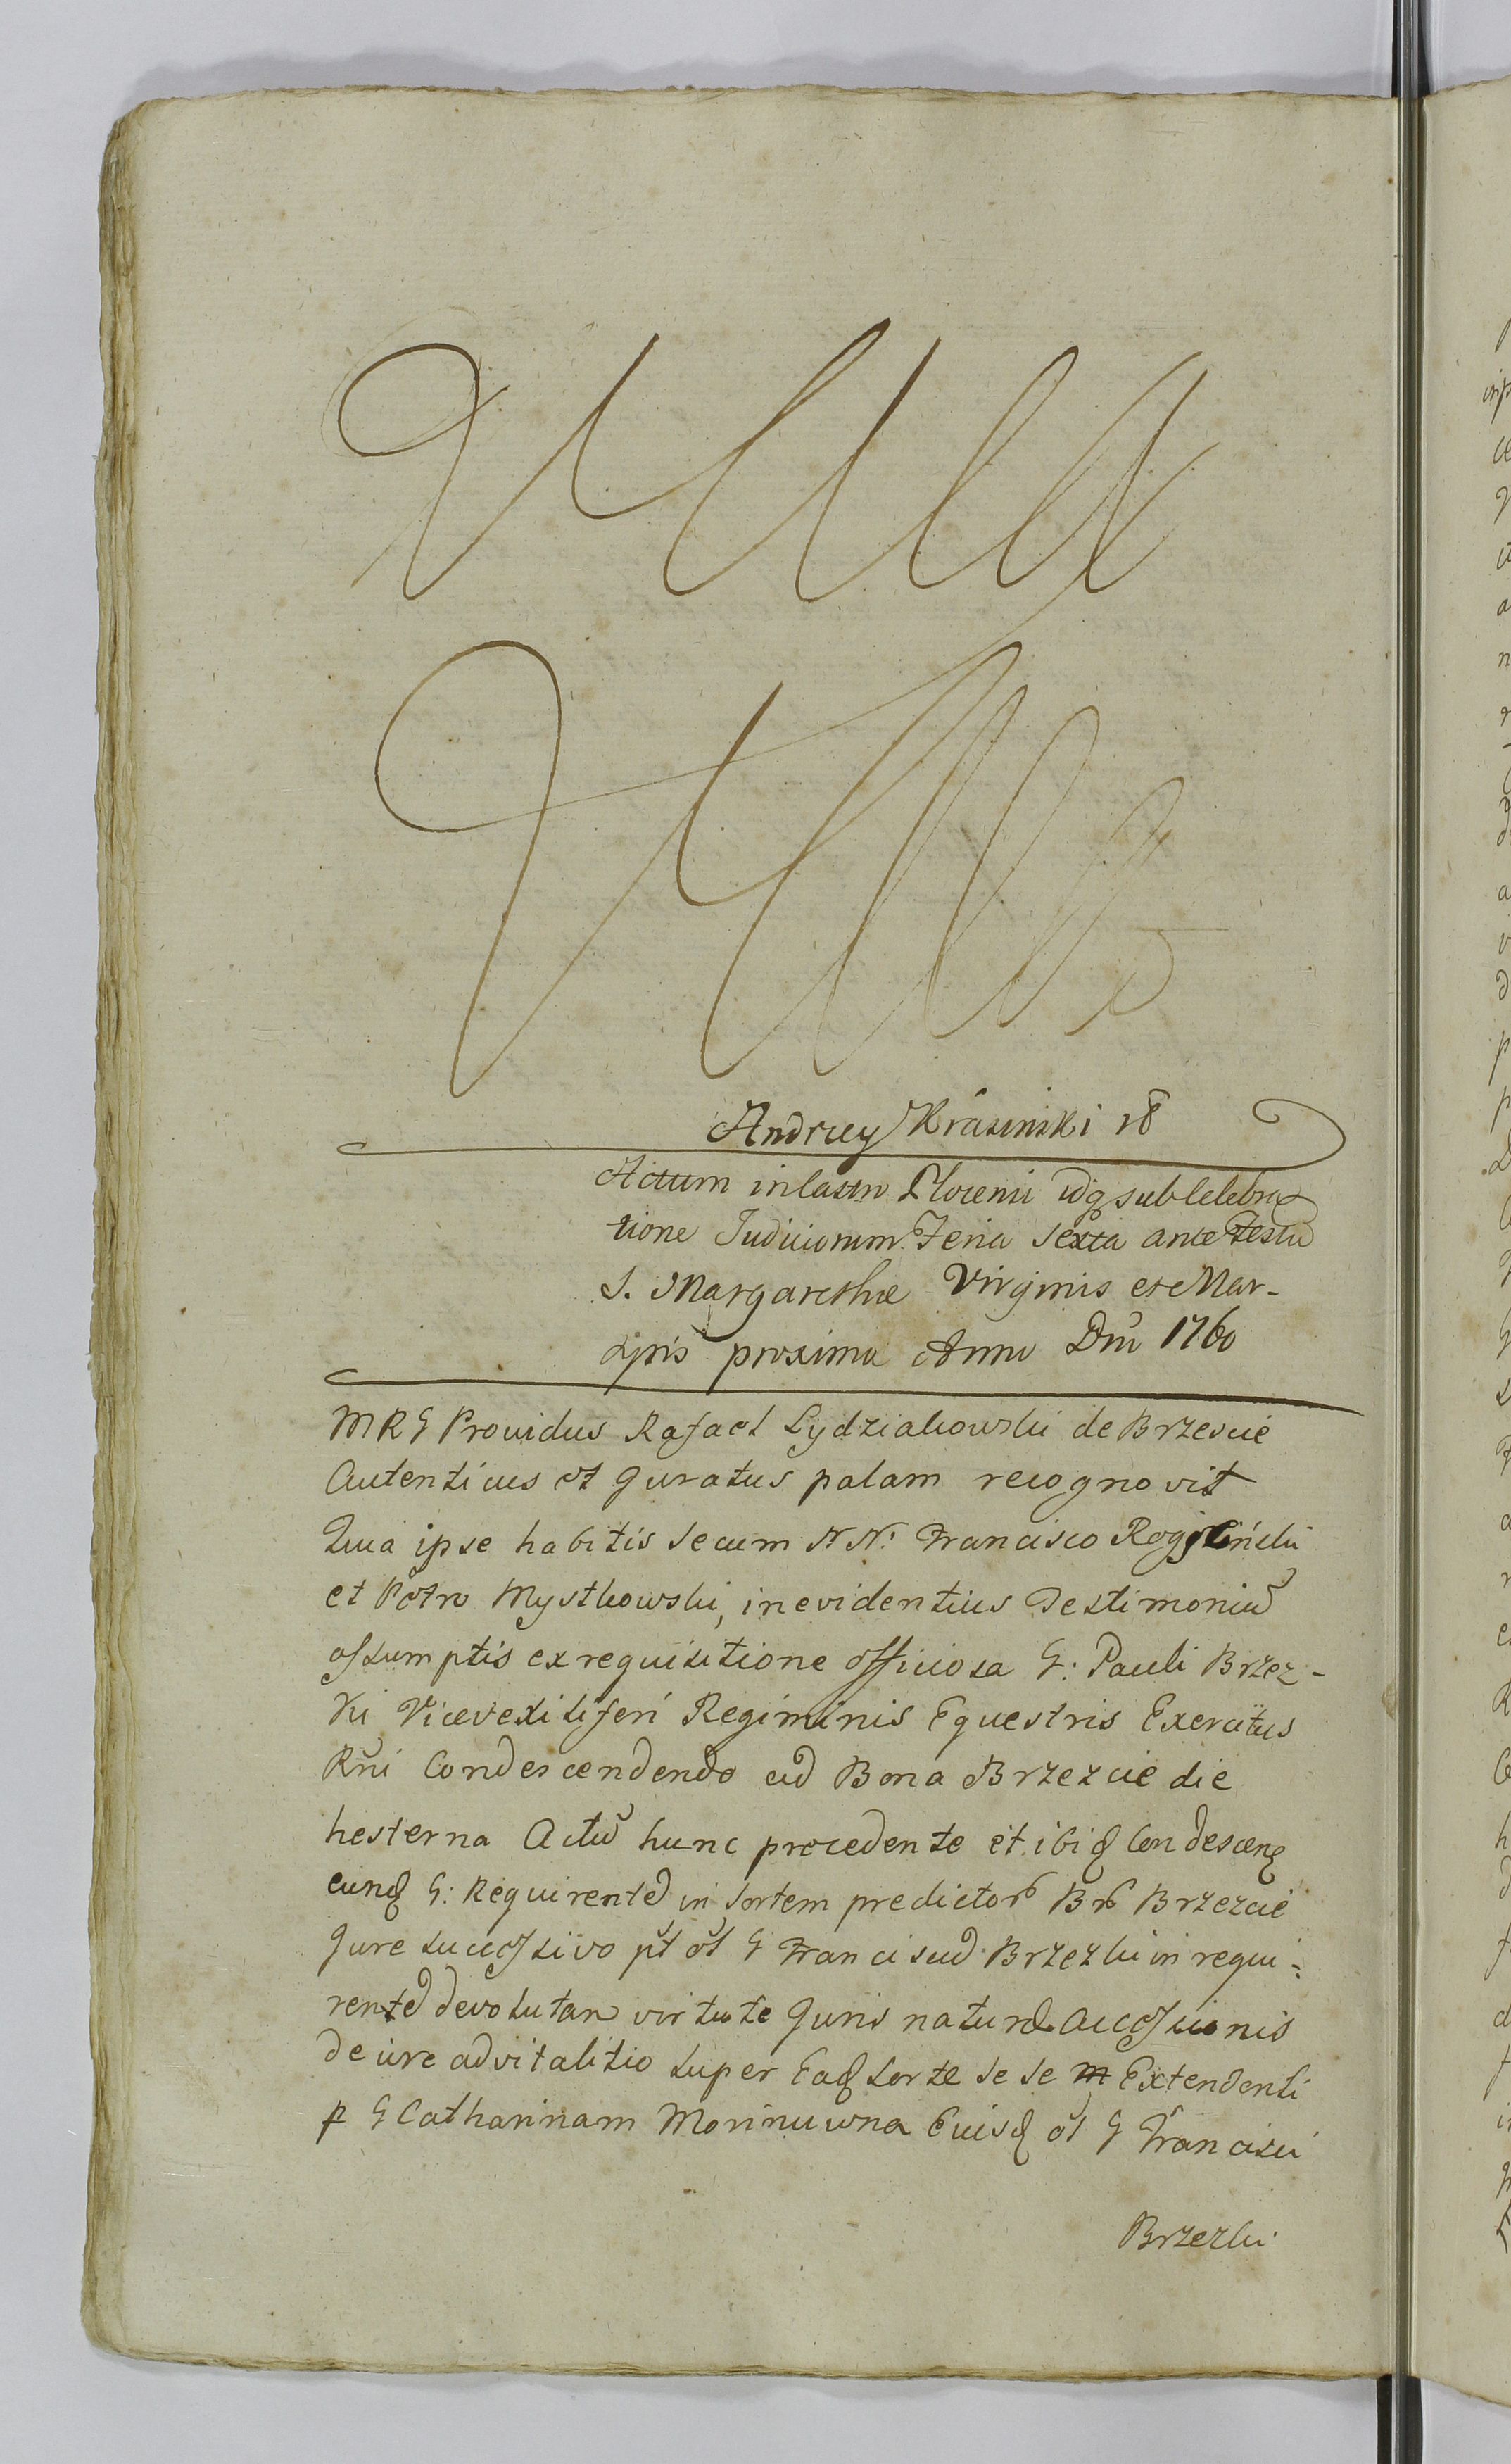 Andrzey Krasinski
Actum in Castro Plocensi idq sub Celebra
tione Judiciorum Feria sexta ante Festu
S. Margarethæ Virginis et Mar-
tyris proxima Anno Dni 1760
MRG Providus Rafael Lydziakowski de Brzescie
Autenticus et Juratus palam recognovit
Quia ipse habitis secum NN: Francisco
et Petro Mystkowski, in evidentius Testimoniu
assumptis ex requisitione officiosa G: Pauli Brzez-
ki Vicevexiliferi Regiminis Equestris Exercitus
Rni Condescendendo ad Bona Brzezcie die
hesterna Actu hunc precedente et ibiq Condescen
eunq G: Requirente in Sortem predictor Br Brzezcie
Jure Successivo pt ol G Franciscu Brzezki in requi-
rente devolutan virtute Juris natura Accessionis
de iure advitalitio super Eaq Sorte se se Extendenti
p G Catharinam Morinuwna Euisq ol G Francisci
Brzezki